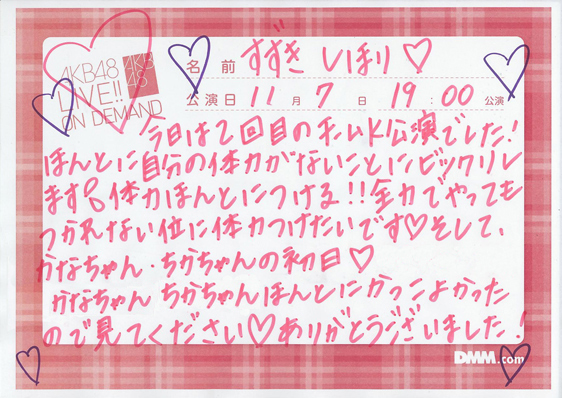 AKB48
LIVE!!
ON DEMAND
AKB
48
名前 すずき しほり♡
公演日 11月7日 19:00公演
今日は2回目のチムK公演でした!
ほんとに自分の体力がないことにビックリし
ます 体力ほんとにつける!!全力でやっても
つかれない位に体力つけたいです♡そして、
かなちゃん・ちかちゃんの初日♡
かなちゃん ちかちゃんほんとにかっこよかった
ので見てください♡ありがとうございました!
DMM.com